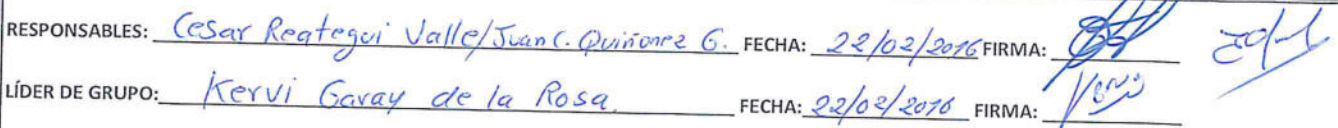 RESPONSABLES: Cesar Reategui Valle/Juan C. Quiñonez G. FECHA: 22/02/2016 FIRMA:
LÍDER DE GRUPO: Kervi Garay de la Rosa. FECHA: 22/02/2016 FIRMA: